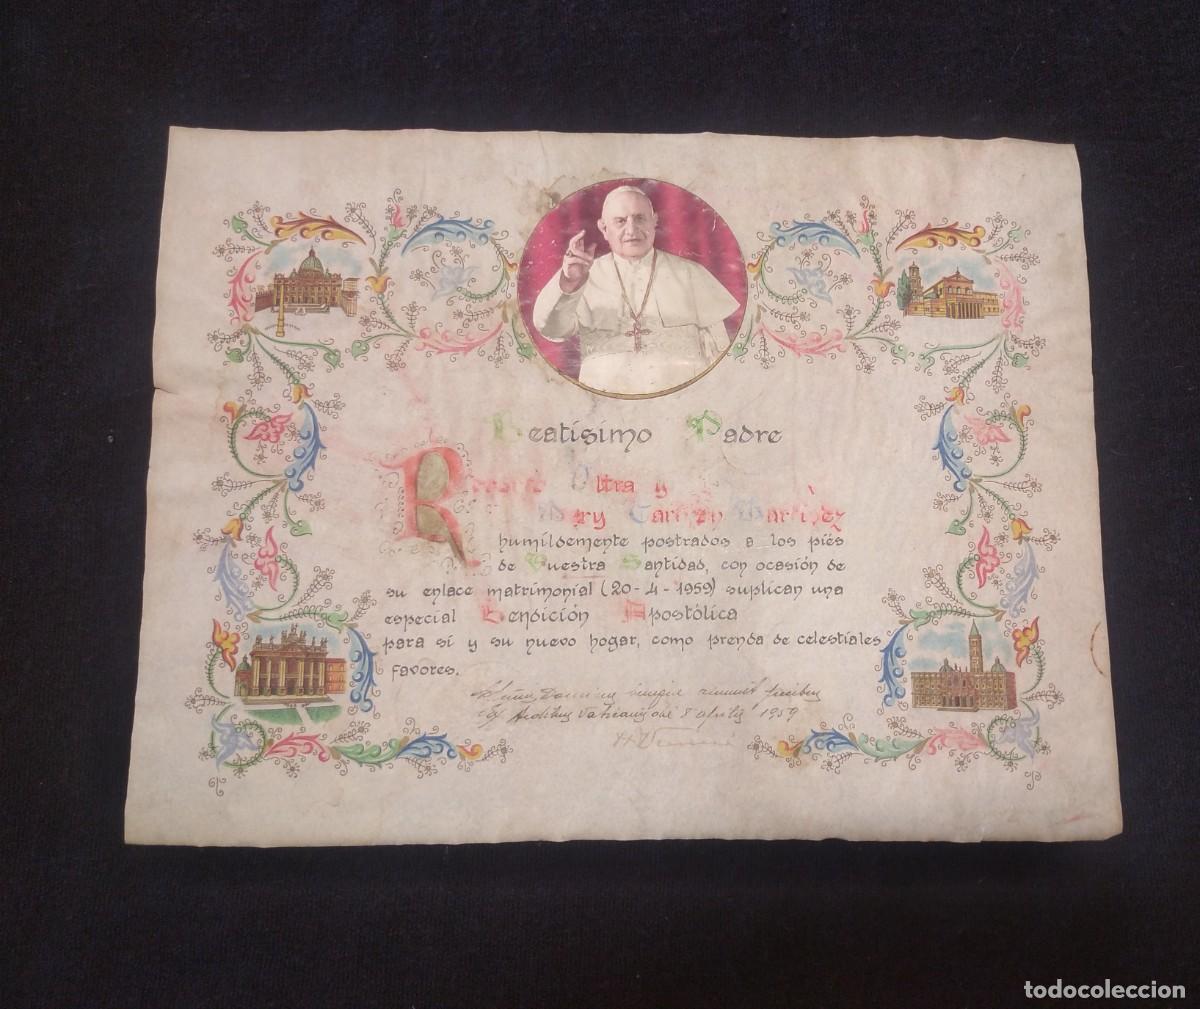 Beatísimo Padre
Ultra y
Mary Carmen Martínez
humildemente postrados a los piés
de Vuestra Santidad, con ocasión de
su enlace matrimonial (20-4-1959) suplican una
especial Bendición Apostólica
para sí y su nuevo hogar, como prenda de celestiales
favores.
Aedibus Vaticanis die 8 aprilis 1959
todocoleccion